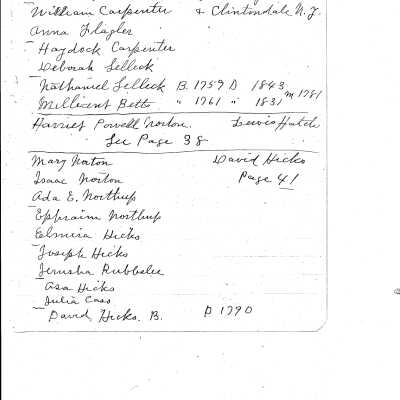 William Carpenter & Clintondale N.Y.
Anna Flagler
Haydock Carpenter
Deborah Selleck
Nathaniel Selleck B. 1759 D 1843 m 1781
Millicent Betts " 1761 " 1831
Harriet Powell Norton. Lewis Hatch
See Page 38
Mary Norton David Hicks
Isaac Norton Page 41
Ada E. Northup
Ephraim Northup
Elmira Hicks
Joseph Hicks
Jerusha Rubbelee
Asa Hicks
Julia Cass
David Hicks. B. D 1790